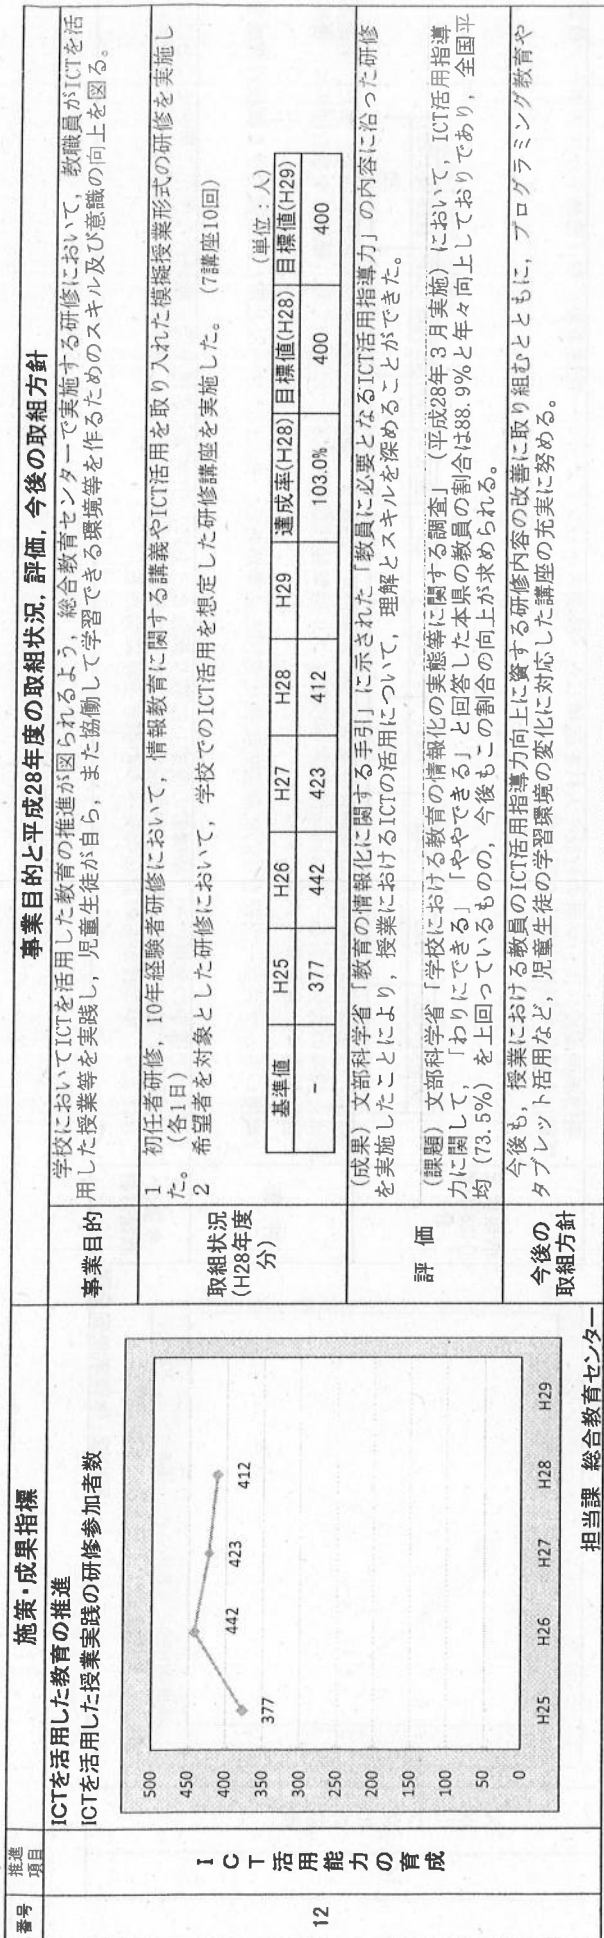 番号
推進
項目
施策・成果指標
事業目的と平成28年度の取組状況，評価，今後の取組方針
12
ICT活用能力の育成
ICTを活用した教育の推進
ICTを活用した授業実践の研修参加者数
500
450
400
350
300
250
200
150
100
50
0
377
442
423
412
H25
H26
H27
H28
H29
担当課 総合教育センター
事業目的
学校においてICTを活用した教育の推進が図られるよう，総合教育センターで実施する研修において，教職員がICTを活
用した授業等を実践し，児童生徒が自ら，また協働して学習できる環境等を作るためのスキル及び意識の向上を図る。
取組状況
(H28年度
分)
1 初任者研修，10年経験者研修において，情報教育に関する講義やICT活用を取り入れた模擬授業形式の研修を実施し
た。（各1日）
2 希望者を対象とした研修において，学校でのICT活用を想定した研修講座を実施した。（7講座10回）
（単位：人）
基準値 H25 H26 H27 H28 H29 達成率(H28) 目標値(H28) 目標値(H29)
- 377 442 423 412 103.0% 400 400
評 価
(成果) 文部科学省「教育の情報化に関する手引」に示された「教員に必要となるICT活用指導力」の内容に沿った研修
を実施したことにより，授業におけるICTの活用について，理解とスキルを深めることができた。
(課題) 文部科学省「学校における教育の情報化の実態等に関する調査」（平成28年３月実施）において，ICT活用指導
力に関して，「わりにできる」「ややできる」と回答した本県の教員の割合は88.9%と年々向上しておりであり，全国平
均（73.5%）を上回っているものの，今後もこの割合の向上が求められる。
今後の
取組方針
今後も，授業における教員のICT活用指導力向上に資する研修内容の改善に取り組むとともに，プログラミング教育や
タブレット活用など，児童生徒の学習環境の変化に対応した講座の充実に努める。